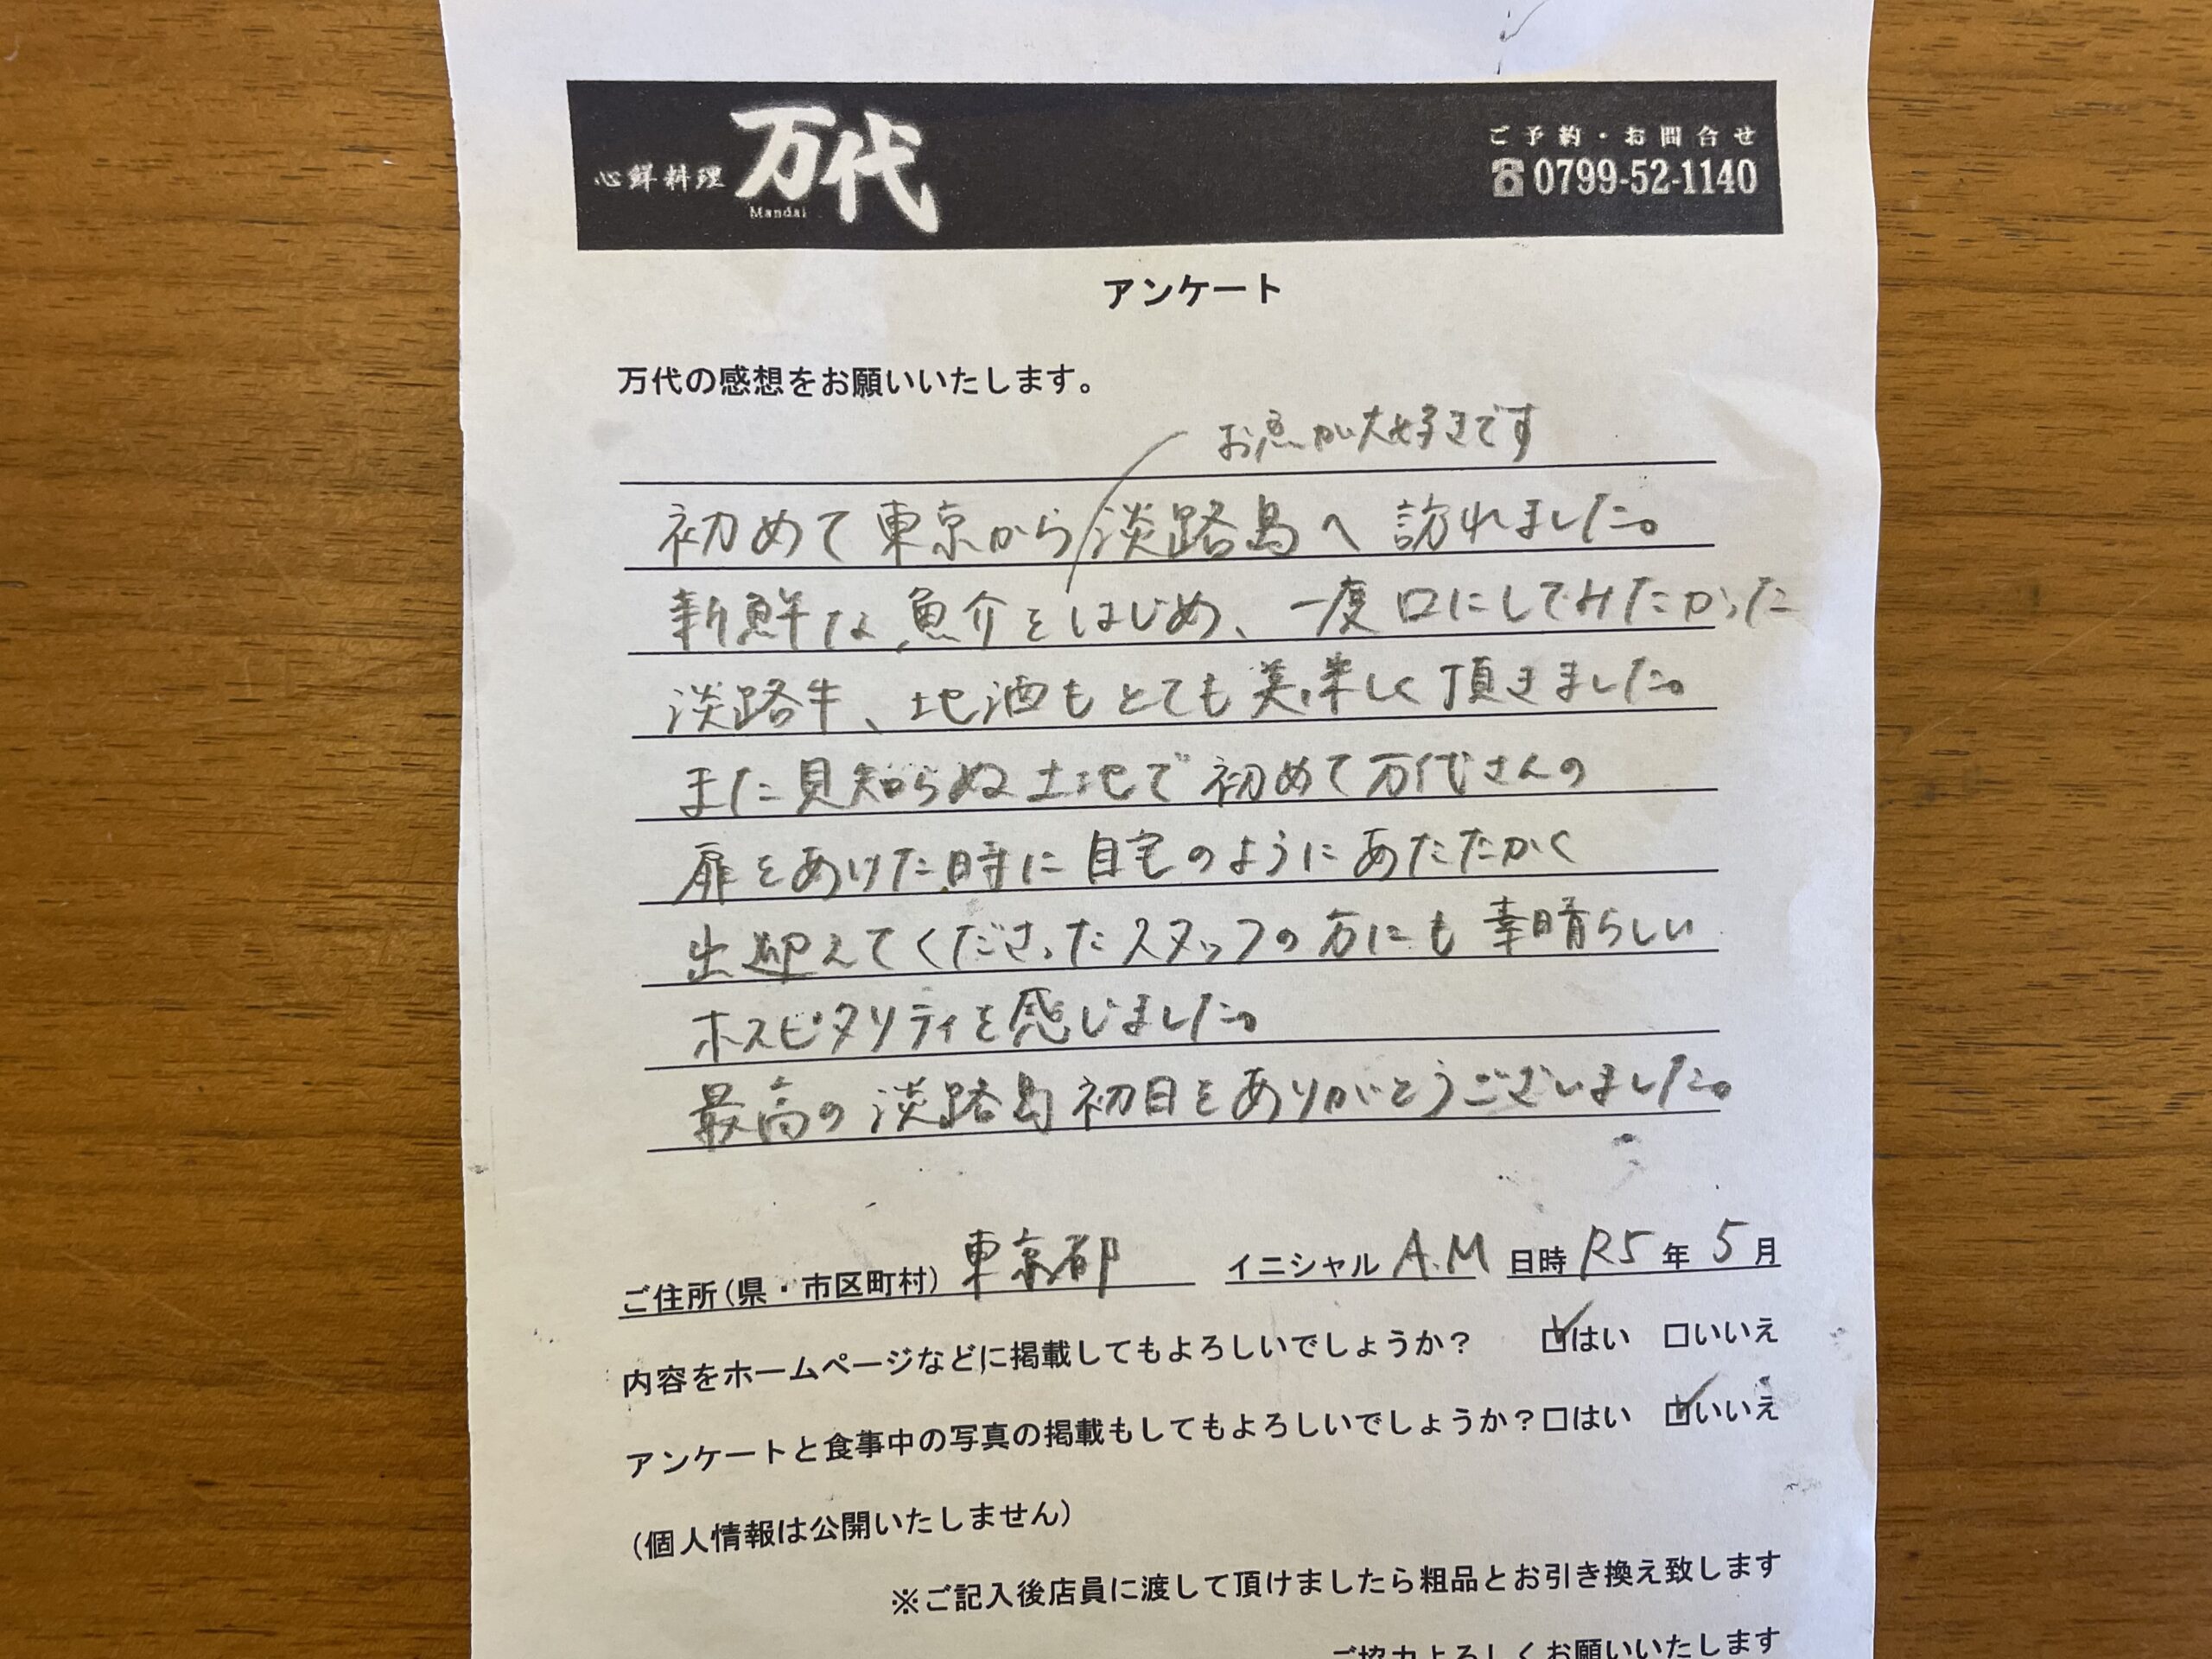 心鮮料理 万代
Mandai
ご予約・お問合せ
☎0799-52-1140
アンケート
万代の感想をお願いいたします。
お魚が大好きです
初めて東京から淡路島へ訪れました。
新鮮な魚介をはじめ、一度口にしてみたかった
淡路牛、地酒もとても美味しく頂きました。
また見知らぬ土地で初めて万代さんの
扉をあけた時に自宅のようにあたたかく
出迎えてくださったスタッフの方にも素晴らしい
ホスピタリティを感じました。
最高の淡路島初日をありがとうございました。
ご住所(県・市区町村) 東京都 イニシャル A.M 日時 R5年 5月
内容をホームページなどに掲載してもよろしいでしょうか? ☑はい □いいえ
アンケートと食事中の写真の掲載もしてもよろしいでしょうか?□はい ☑いいえ
(個人情報は公開いたしません)
※ご記入後店員に渡して頂けましたら粗品とお引き換え致します
ご協力よろしくお願いいたします